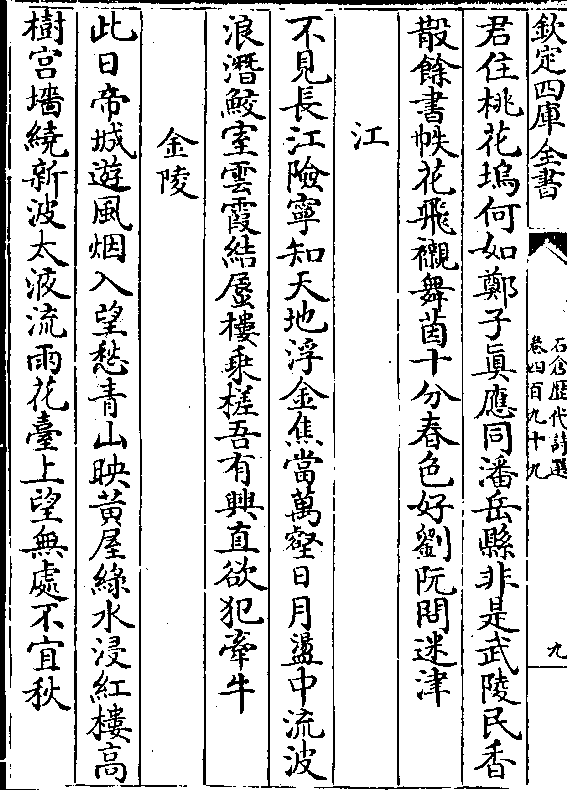 欽定四庫全書
石倉歷代詩選
卷四百九十九
九
君住桃花塢何如鄭子真應同潘岳縣非是武陵民香
散餘書帙花飛襯舞茵十分春色好劉阮問迷津
江
不見長江險寧知天地浮金焦當萬壑日月盪中流波
浪潛鮫室雲霞結蜃樓乘槎吾有興直欲犯牽牛
金陵
此日帝城遊風烟入望愁青山映黃屋綠水浸紅樓高
樹宮墻繞新波太液流雨花臺上望無處不宜秋